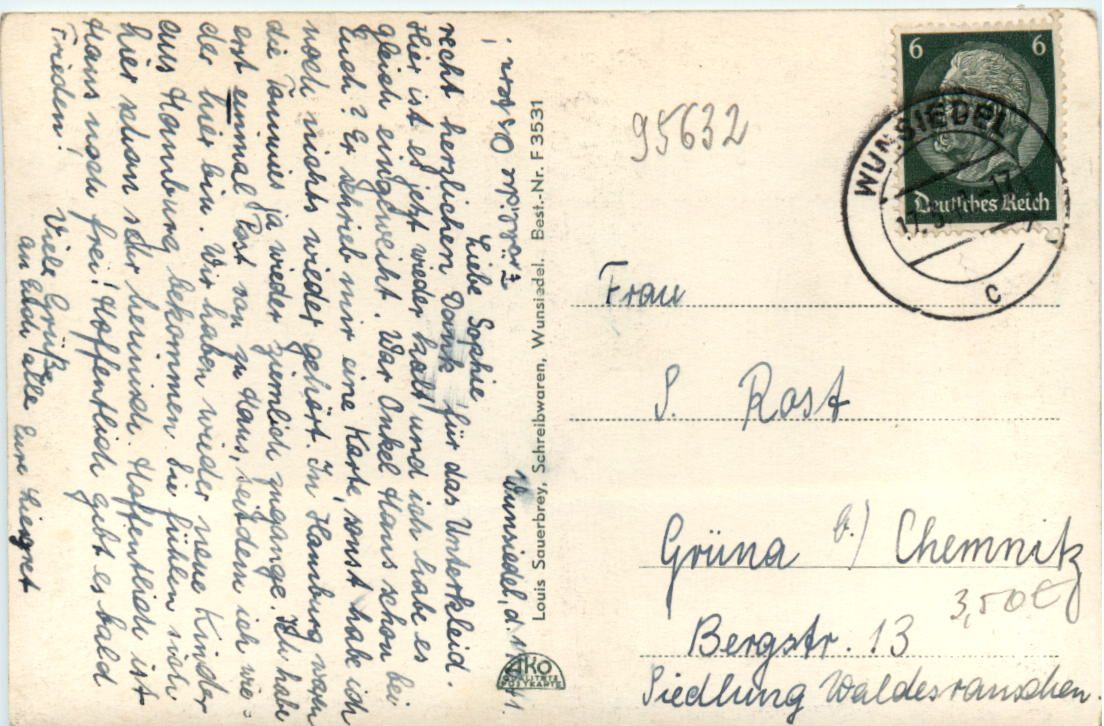 Wunsiedel, d.
Liebe Sophie
recht herzlichen Dank für das Unterkleid.
Hier ist es jetzt wieder kalt und ich habe es
gleich eingeweiht. War Onkel Hans schon bei
Euch? Er schrieb mir eine Karte, sonst habe ich
noch nichts wieder gehört. In Hamburg waren
die Tommies ja wieder ziemlich zugange. Ich habe
erst einmal Post von zu Haus, seitdem ich wie-
der hier bin. Wir haben wieder neue Kinder
aus Hamburg bekommen. Sie fühlen sich
hier schon sehr heimisch. Hoffentlich ist
Hans noch frei! Hoffentlich gibt es bald
Frieden! Viele Grüße
an Euch alle Eure
Ostern!
Louis Sauerbrey, Schreibwaren, Wunsiedel. Best.-Nr. F 3531
AKO
QUALITÄTS
POSTKARTE
95632
6 6
Deutsches Reich
WUNSIEDEL
c
Frau
S. Rost
Grüna b./ Chemnitz
3,50€
Bergstr. 13
Siedlung Waldesrauschen.